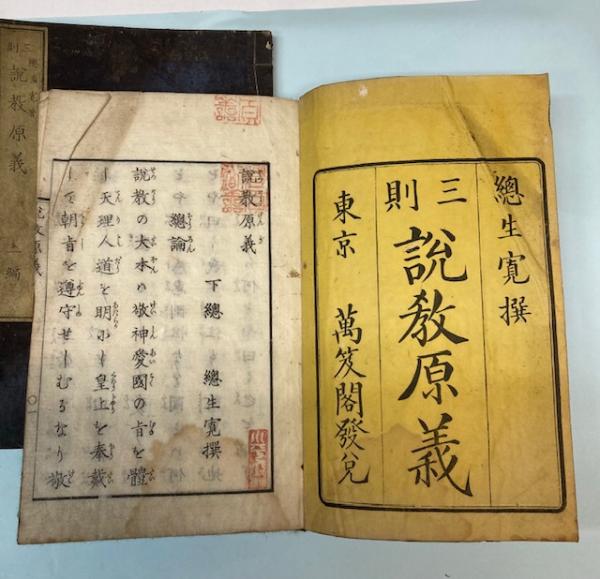 總生寛撰
三則
說教原義
東京 萬笈閣發兌
說教原義
下總 總生寛撰
總論
說教の大本ハ敬神愛國の旨を體
し天理人道を明かにし皇上を奉戴
して朝旨を遵守せしむるなり敬
說教原義
三則
說教原義
上編